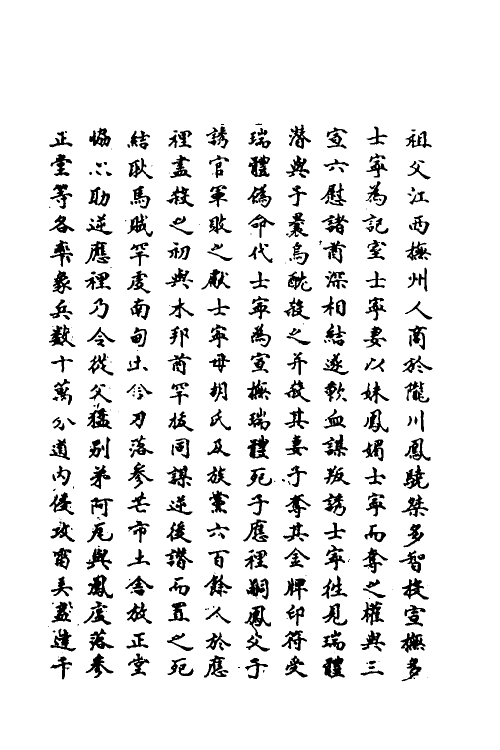 祖父江西撫州人商於隴川鳳驍桀多智投宣撫多
士寧為記室士寧妻以妹鳳媚士寧而奪之權與三
宣六慰諸酋深相結遂歃血謀叛誘士寧徃見瑞體
潛與子曩烏酖殺之并殺其妻子奪其金牌印符受
瑞體偽命代士寧為宣撫瑞體死子應裡嗣鳳父子
誘官軍敗之獻士寧母胡氏及族黨六百餘人於應
裡盡殺之初與木邦酋罕拔同謀逆後譖而置之死
結耿馬賊罕虔南甸土舍刀落參芒市土舍放正堂
恊心助逆應裡乃令從父猛别弟阿瓦與鳳虔落參
正堂等各率象兵數十萬分道内侵攻